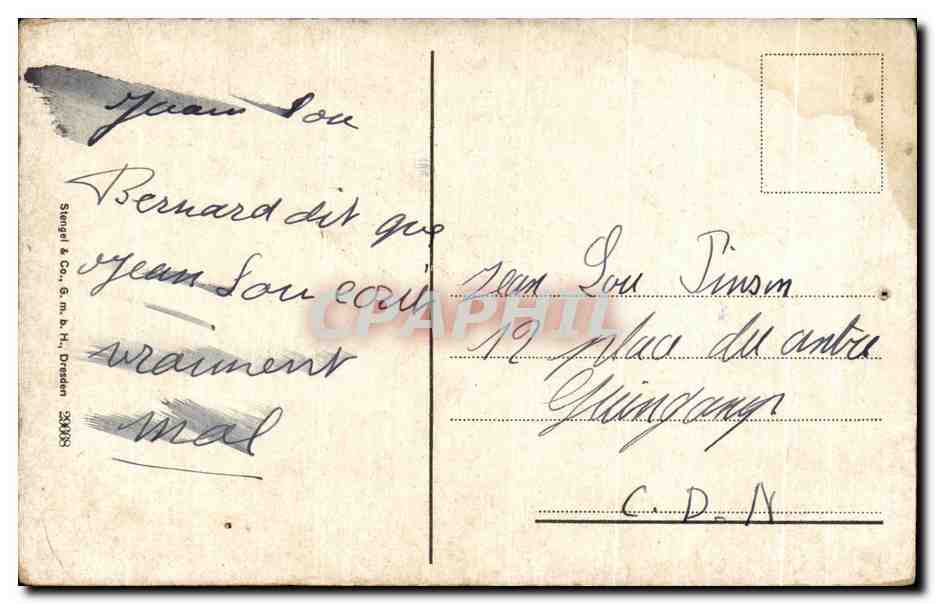 Jean Lou
Bernard dit que
Jean Lou écrit
vraiment
mal
Stengel & Co., G. m. b. H., Dresden 29668
Jean Lou Pinson
12 place du centre
Guingamp
C. D. N
CPAPHIL